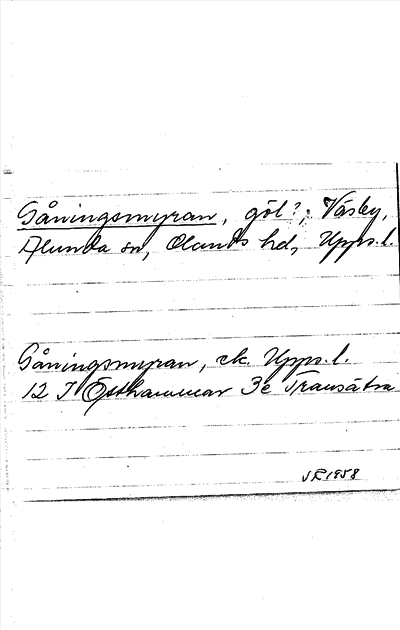 Gåningsmyran, göl?, Väsby,
Alunda sn, Olands hd, Upps. l.
Gåningsmyran, ek. Upps. l.
12 I Östhammar 3e Transätra
JR 1958